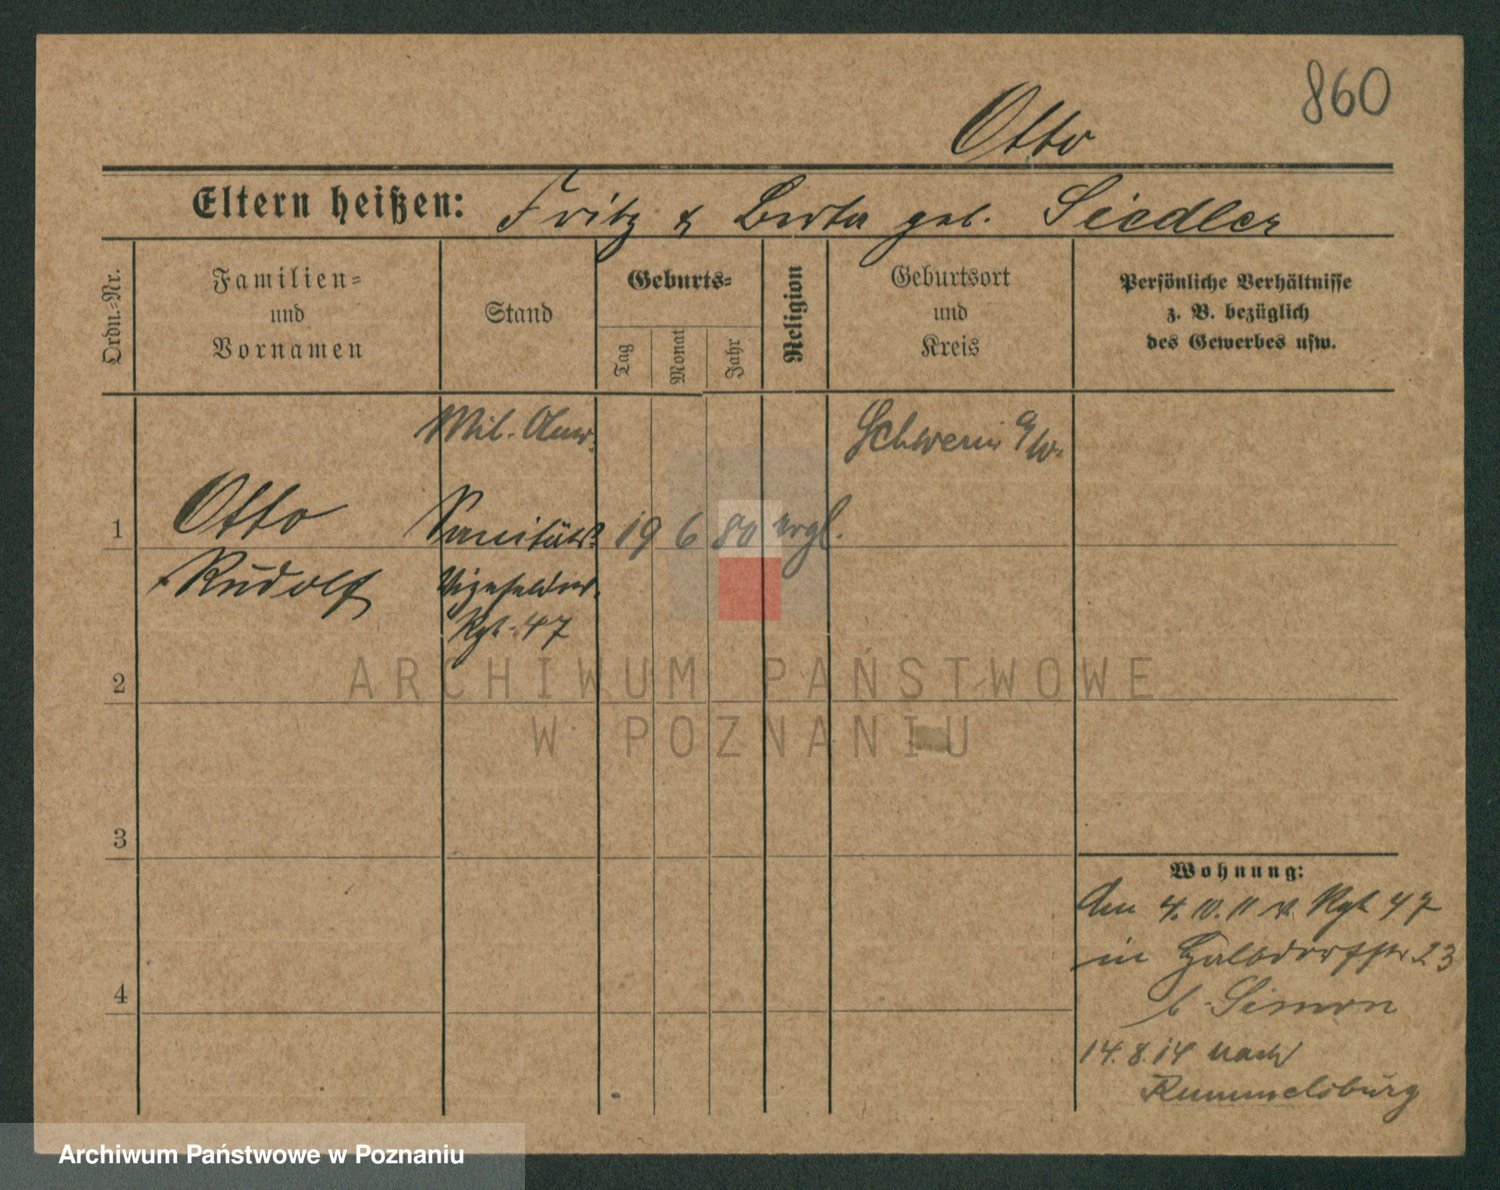 860
Otto
Eltern heißen: Fritz & Berta geb. Siedler
Ordn.-Nr.
Familien-
und
Vornamen
Stand
Geburts-
Tag
Monat
Jahr
Religion
Geburtsort
und
Kreis
Persönliche Verhältnisse
z. B. bezüglich
des Gewerbes usw.
Mil. Anw.
Schwerin a/W.
1 Otto Sanitäts 19 6 80 evgl.
Rudolf Vizefeldw.
Rgt. 47
2
3
4
Wohnung:
Am 4. IV. 11 v. Rgt 47
in Halbdorfstr 23
b. Simon
14.8.14 nach
Rummelsburg
ARCHIWUM PAŃSTWOWE
W POZNANIU
Archiwum Państwowe w Poznaniu